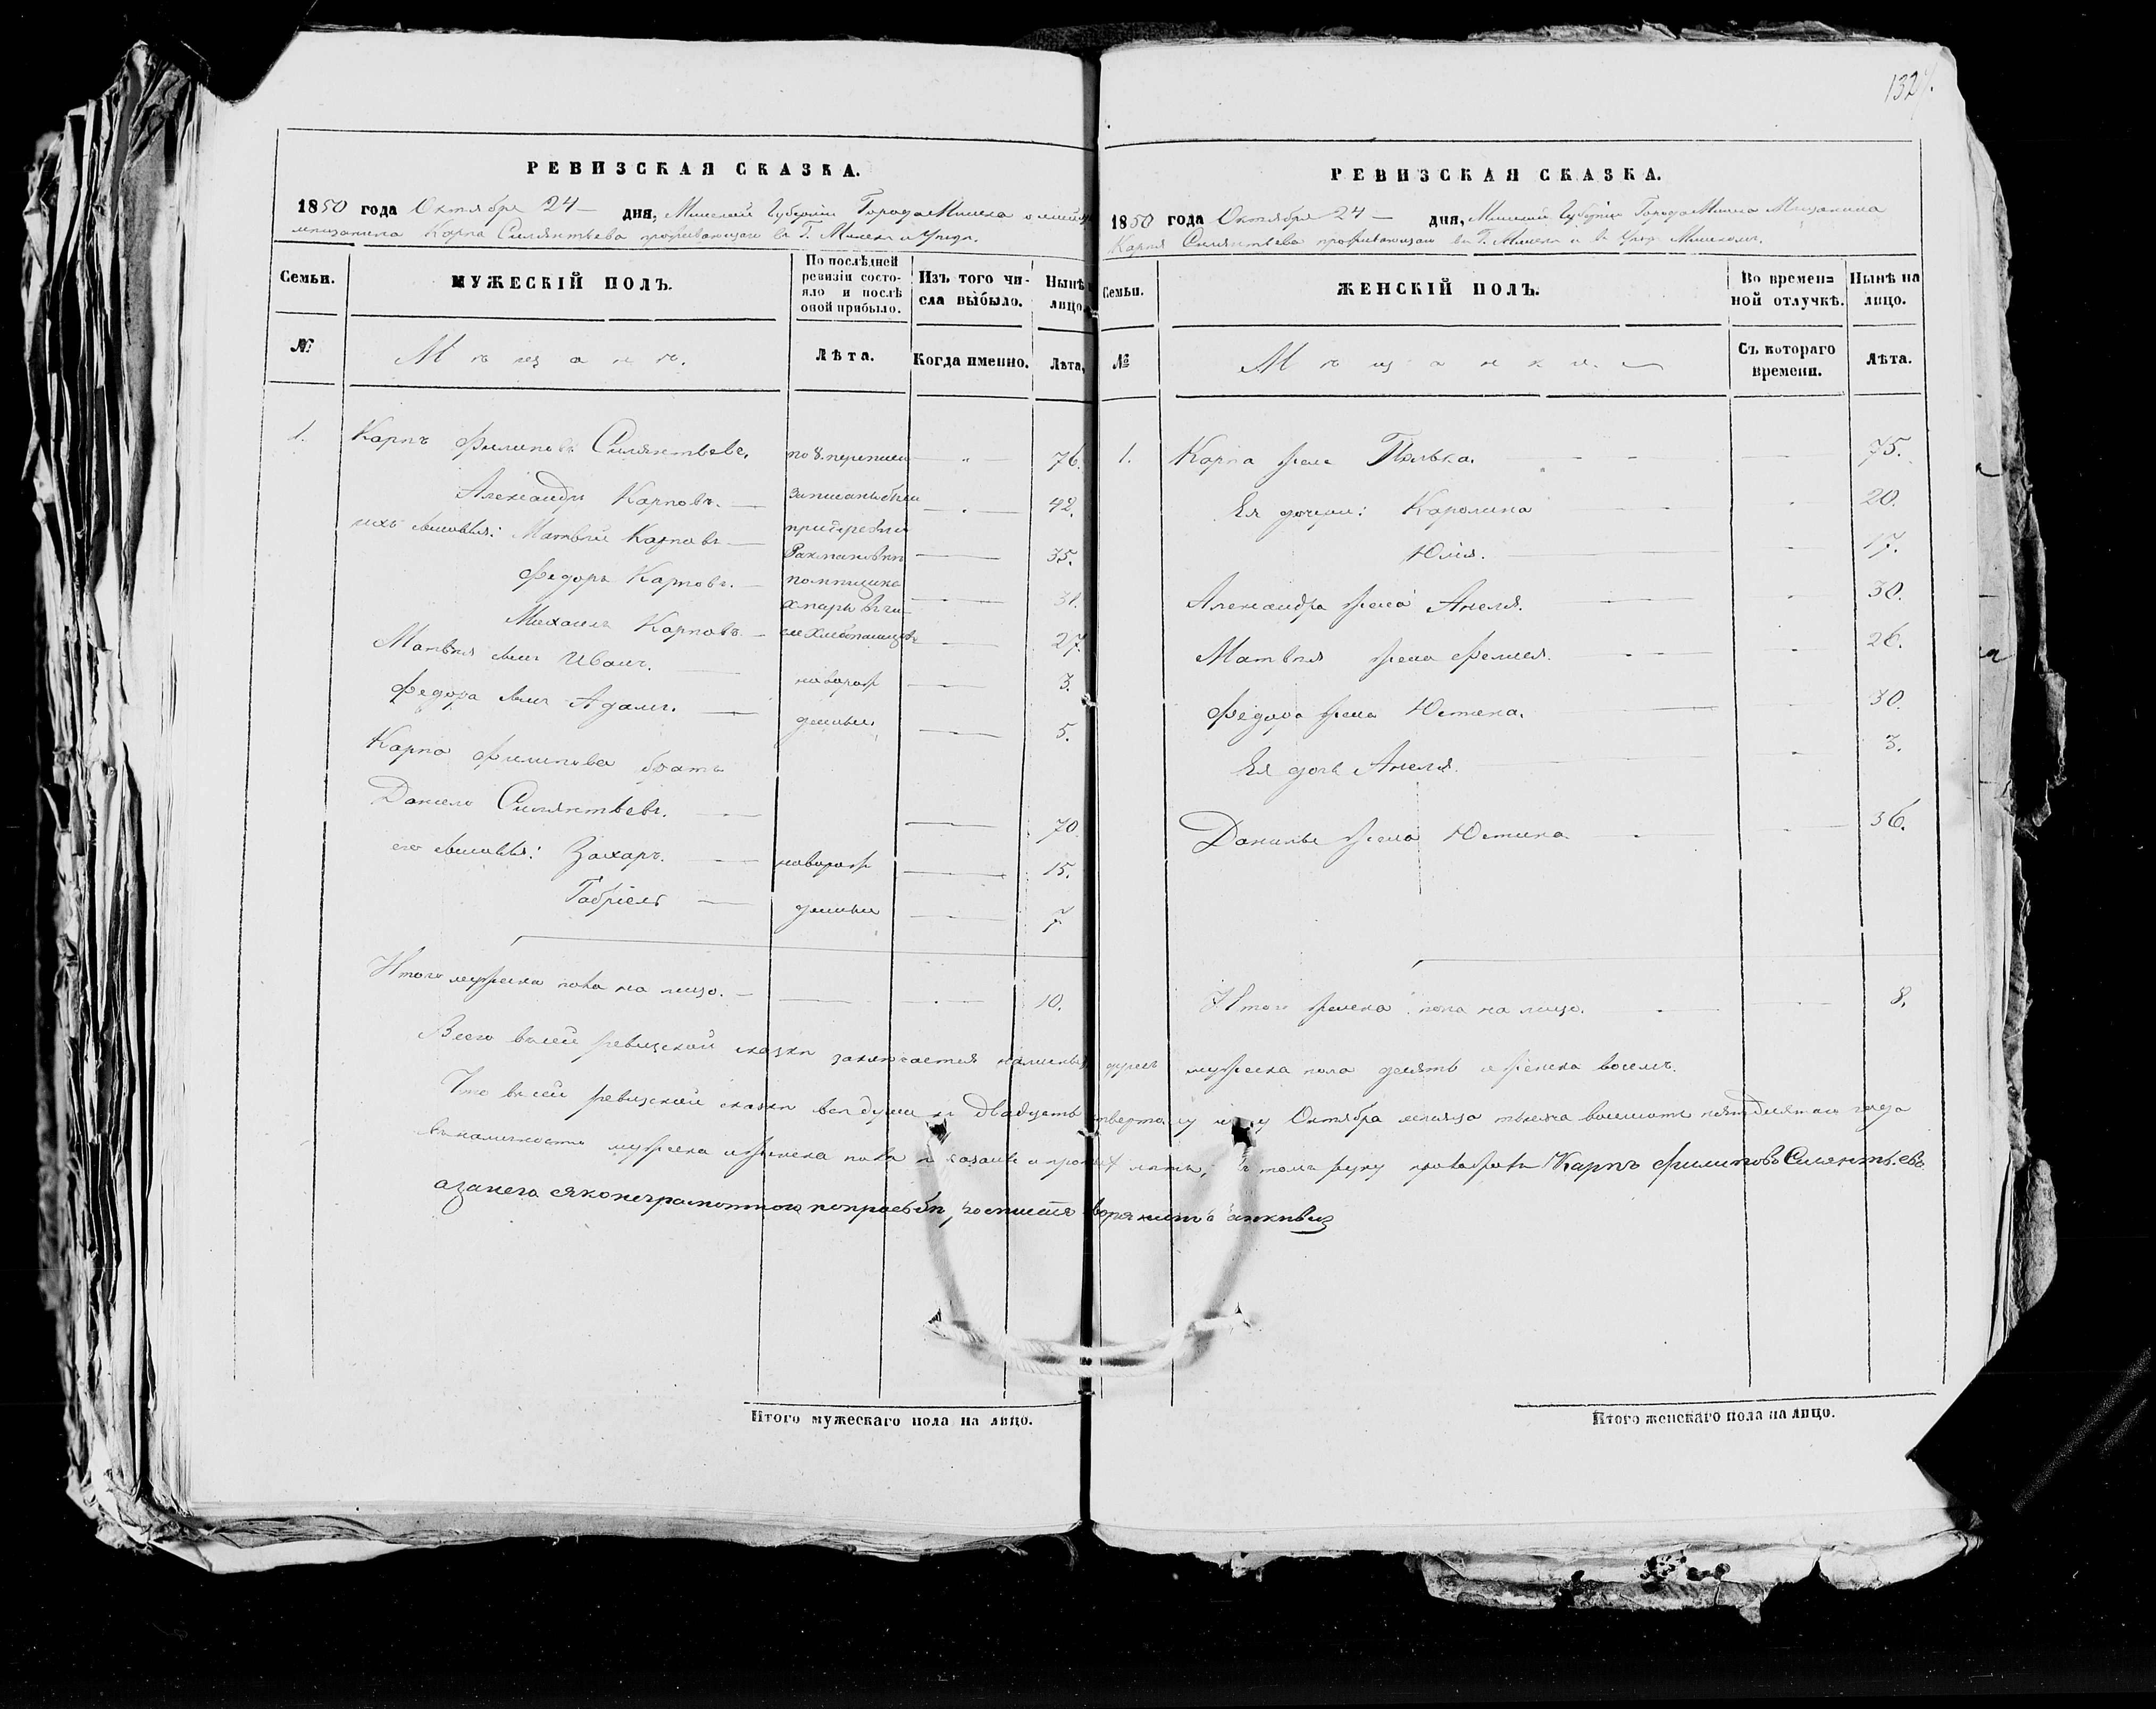 РЕВИЗСКАЯ СКАЗКА.
1850 года Октября 24 дня, Минской Губерніи Города Минска о
мѣщанина Карпа Силянтьева проживающаго въ Г. Минскѣ и Уѣздѣ.
Семьи.
МУЖЕСКІЙ ПОЛЪ.
По послѣдней ревизіи состо-
яло и послѣ
оной прибыло.
Изъ того чи-
сла выбыло.
Нынѣ
лицо
№
Мѣщанѣ.
Лѣта.
Когда именно.
Лѣта,
1. Карпъ Филиповъ Силянтьевъ, по 8. переписи 76.
Александръ Карповъ. записаны были 42.
ихъ сыновья: Матвѣй Карповъ при деревни 35.
Федоръ Карповъ. помѣщика 31.
Михаилъ Карповъ 27.
Матвѣя сынъ Иванъ. новорож 3.
Федора сынъ Адамъ. денные, 5.
Карпа Филипова братъ
Данило Силянтьевъ. 70.
его сыновья: Захаръ. новорож 15.
Габріель денные 7
Итого мужеска пола на лицо. 10.
Итого мужескаго пола на лицо.
132
РЕВИЗСКАЯ СКАЗКА.
1850 года Октября 24 дня, Минской Губерніи Города Минска Мѣщанина
Карпа Силянтьева проживающаго въ Г. Минскѣ и въ Уѣздѣ Минскомъ.
Семьи.
ЖЕНСКІЙ ПОЛЪ.
Во времен=
ной отлучкѣ.
Нынѣ на
лицо.
№
Мѣщанки.
Съ котораго
времени.
Лѣта.
1. Карпа жена 75.
Ея дочери: Каролина 20.
Юлія. 17.
Александра жена Анеля. 30.
Матвѣя жена 26.
Федора жена Юстина. 30.
Ея дочь Анеля. 3.
Данилы жена Юстина 36.
Итого женска пола на лицо. 8.
Всего въ сей ревизской сказкѣ заключается наличныхъ душъ мужеска пола десять и женска восемь.
Что въ сей ревизской сказкѣ всѣ души къ двадцать четвертому Октября мѣсяца тысяча восемсотъ пятдесятаго года
въ наличности мужеска и женска пола показаны лѣты, въ томъ руку Карпъ Филиповъ Силянтьевъ
а за него яко неграмотнаго по просьбѣ
Итого женскаго пола на лицо.